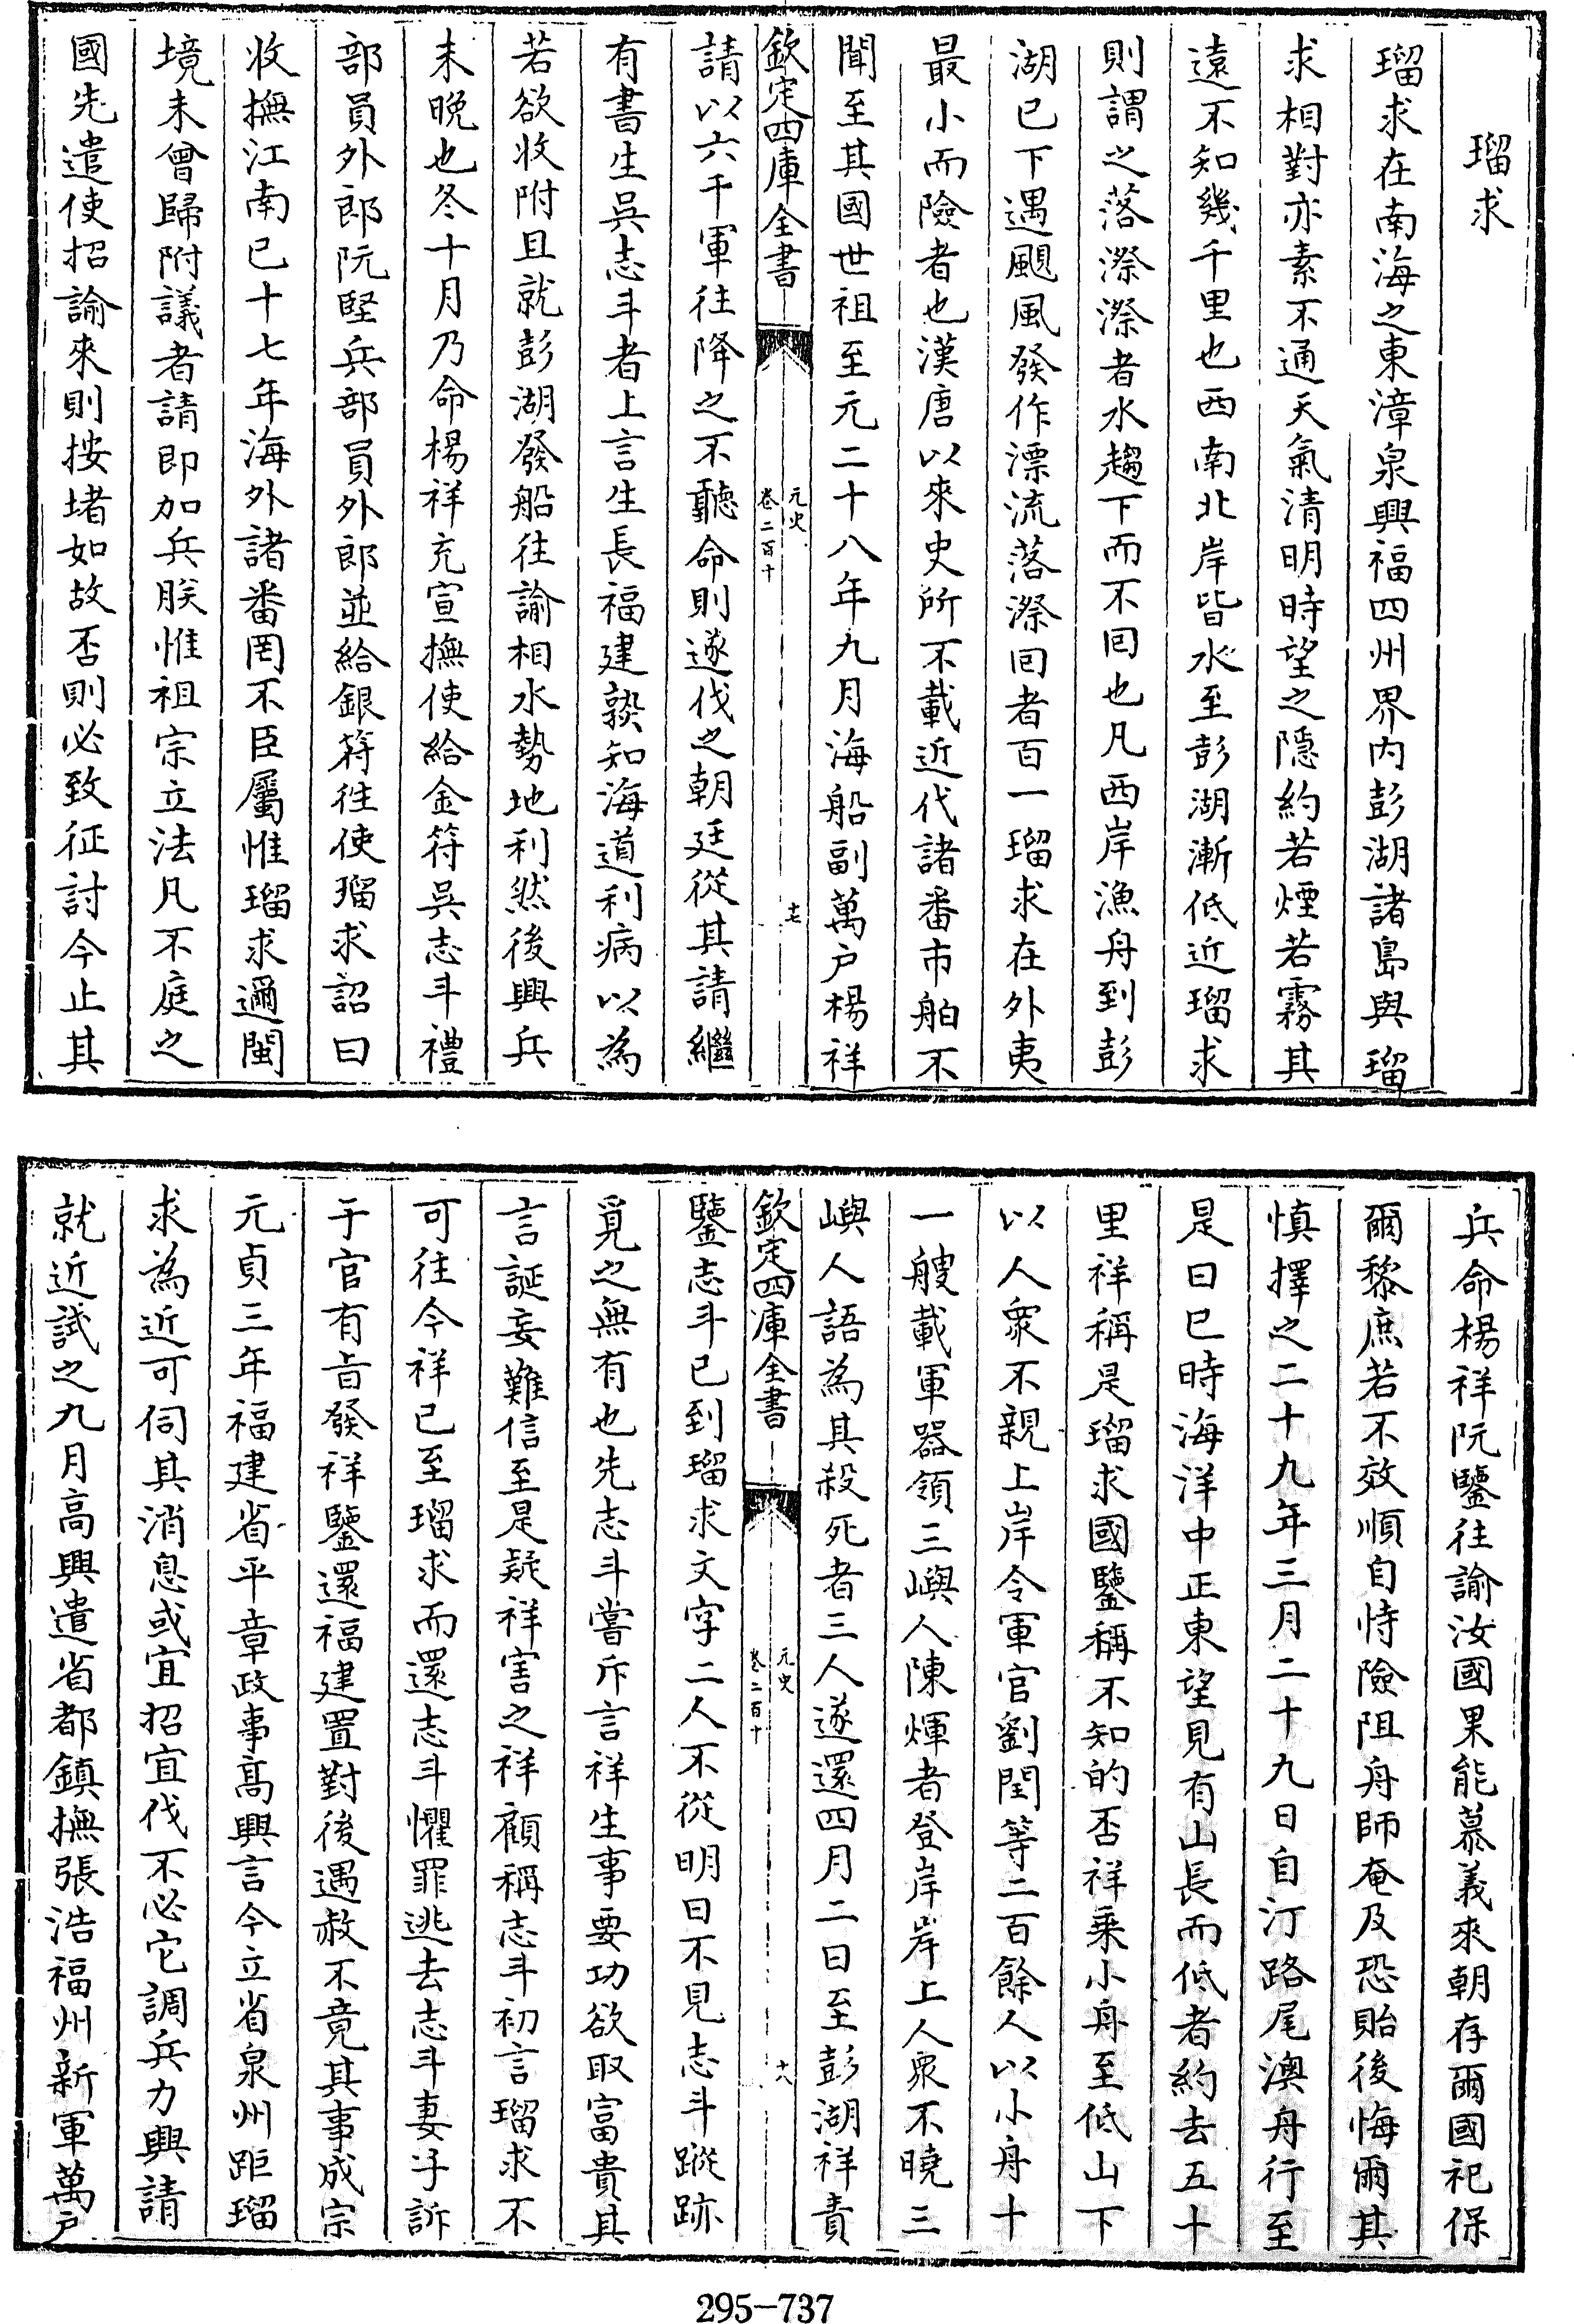 瑠求
瑠求在南海之東漳泉興福四州界内彭湖諸島與瑠
求相對亦素不通天氣清明時望之隱約若煙若霧其
遠不知幾千里也西南北岸皆水至彭湖漸低近瑠求
則謂之落漈漈者水趨下而不回也凡西岸漁舟到彭
湖已下遇颶風發作漂流落漈回者百一瑠求在外夷
最小而險者也漢唐以來史所不載近代諸番市舶不
聞至其國世祖至元二十八年九月海船副萬户楊祥
欽定四庫全書
元史
卷二百十
十七
請以六千軍往降之不聽命則遂伐之朝廷從其請繼
有書生吳志斗者上言生長福建熟知海道利病以為
若欲收附且就彭湖發船往諭相水勢地利然後興兵
未晚也冬十月乃命楊祥充宣撫使給金符吳志斗禮
部員外郎阮堅兵部員外郎並給銀符徃使瑠求詔曰
收撫江南已十七年海外諸番罔不臣屬惟瑠求邇閩
境未曾歸附議者請即加兵朕惟祖宗立法凡不庭之
國先遣使招諭來則按堵如故否則必致征討今止其
兵命楊祥阮鑒往諭汝國果能慕義來朝存爾國祀保
爾黎庶若不效順自恃險阻舟師奄及恐貽後悔爾其
慎擇之二十九年三月二十九日自汀路尾澳舟行至
是日巳時海洋中正東望見有山長而低者約去五十
里祥稱是瑠求國鑒稱不知的否祥乗小舟至低山下
以人衆不親上岸令軍官劉閏等二百餘人以小舟十
一艘載軍器領三嶼人陳煇者登岸岸上人衆不曉三
嶼人語為其殺死者三人遂還四月二日至彭湖祥責
欽定四庫全書
元史
卷二百十
十八
鑒志斗已到瑠求文字二人不從明日不見志斗蹤跡
覓之無有也先志斗嘗斥言祥生事要功欲取富貴其
言誕妄難信至是疑祥害之祥顧稱志斗初言瑠求不
可往今祥已至瑠求而還志斗懼罪逃去志斗妻子訴
于官有旨發祥鑒還福建置對後遇赦不竟其事成宗
元貞三年福建省平章政事高興言今立省泉州距瑠
求為近可伺其消息或宜招宜伐不必它調兵力興請
就近試之九月高興遣省都鎮撫張浩福州新軍萬户
295-737